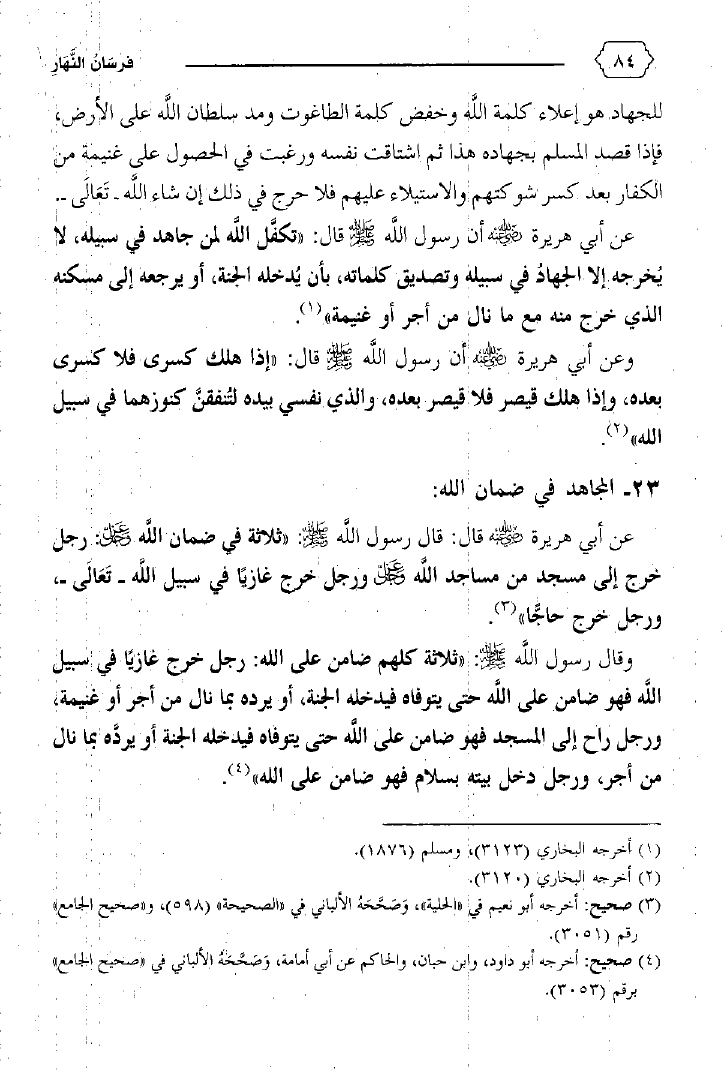 ٨٤ فرسَانُ النَّهَارِ
للجهاد هو إعلاء كلمة اللَّه وخفض كلمة الطاغوت ومد سلطان اللَّه على الأرض،
فإذا قصد المسلم بجهاده هذا ثم اشتاقت نفسه ورغبت في الحصول على غنيمة من
الكفار بعد كسر شوكتهم والاستيلاء عليهم فلا حرج في ذلك إن شاء اللَّه ـ تَعَالَى ـ.
عن أبي هريرة رضي الله عنه أن رسول اللَّه ﷺ قال: «تكفَّل اللَّه لمن جاهد في سبيله، لا
يُخرجه إلا الجهادُ في سبيله وتصديق كلماته، بأن يُدخله الجنة، أو يرجعه إلى مسكنه
الذي خرج منه مع ما نال من أجر أو غنيمة»(١).
وعن أبي هريرة رضي الله عنه أن رسول اللَّه ﷺ قال: «إذا هلك كسرى فلا كسرى
بعده، وإذا هلك قيصر فلا قيصر بعده، والذي نفسي بيده لتُنفقنَّ كنوزهما في سبيل
الله»(٢).
٢٣ـ المجاهد في ضمان الله:
عن أبي هريرة رضي الله عنه قال: قال رسول اللَّه ﷺ: «ثلاثة في ضمان اللَّه عز وجل: رجل
خرج إلى مسجد من مساجد اللَّه عز وجل ورجل خرج غازيًا في سبيل اللَّه ـ تَعَالَى ـ،
ورجل خرج حاجًّا»(٣).
وقال رسول اللَّه ﷺ: «ثلاثة كلهم ضامن على الله: رجل خرج غازيًا في سبيل
اللَّه فهو ضامن على اللَّه حتى يتوفاه فيدخله الجنة، أو يرده بما نال من أجر أو غنيمة،
ورجل راح إلى المسجد فهو ضامن على اللَّه حتى يتوفاه فيدخله الجنة أو يردَّه بما نال
من أجر، ورجل دخل بيته بسلام فهو ضامن على الله»(٤).
(١) أخرجه البخاري (٣١٢٣)، ومسلم (١٨٧٦).
(٢) أخرجه البخاري (٣١٢٠).
(٣) صحيح: أخرجه أبو نعيم في «الحلية»، وَصَحَّحَهُ الألباني في «الصحيحة» (٥٩٨)، و«صحيح الجامع»
رقم (٣٠٥١).
(٤) صحيح: أخرجه أبو داود، وابن حبان، والحاكم عن أبي أمامة، وَصَحَّحَهُ الألباني في «صحيح الجامع»
برقم (٣٠٥٣).